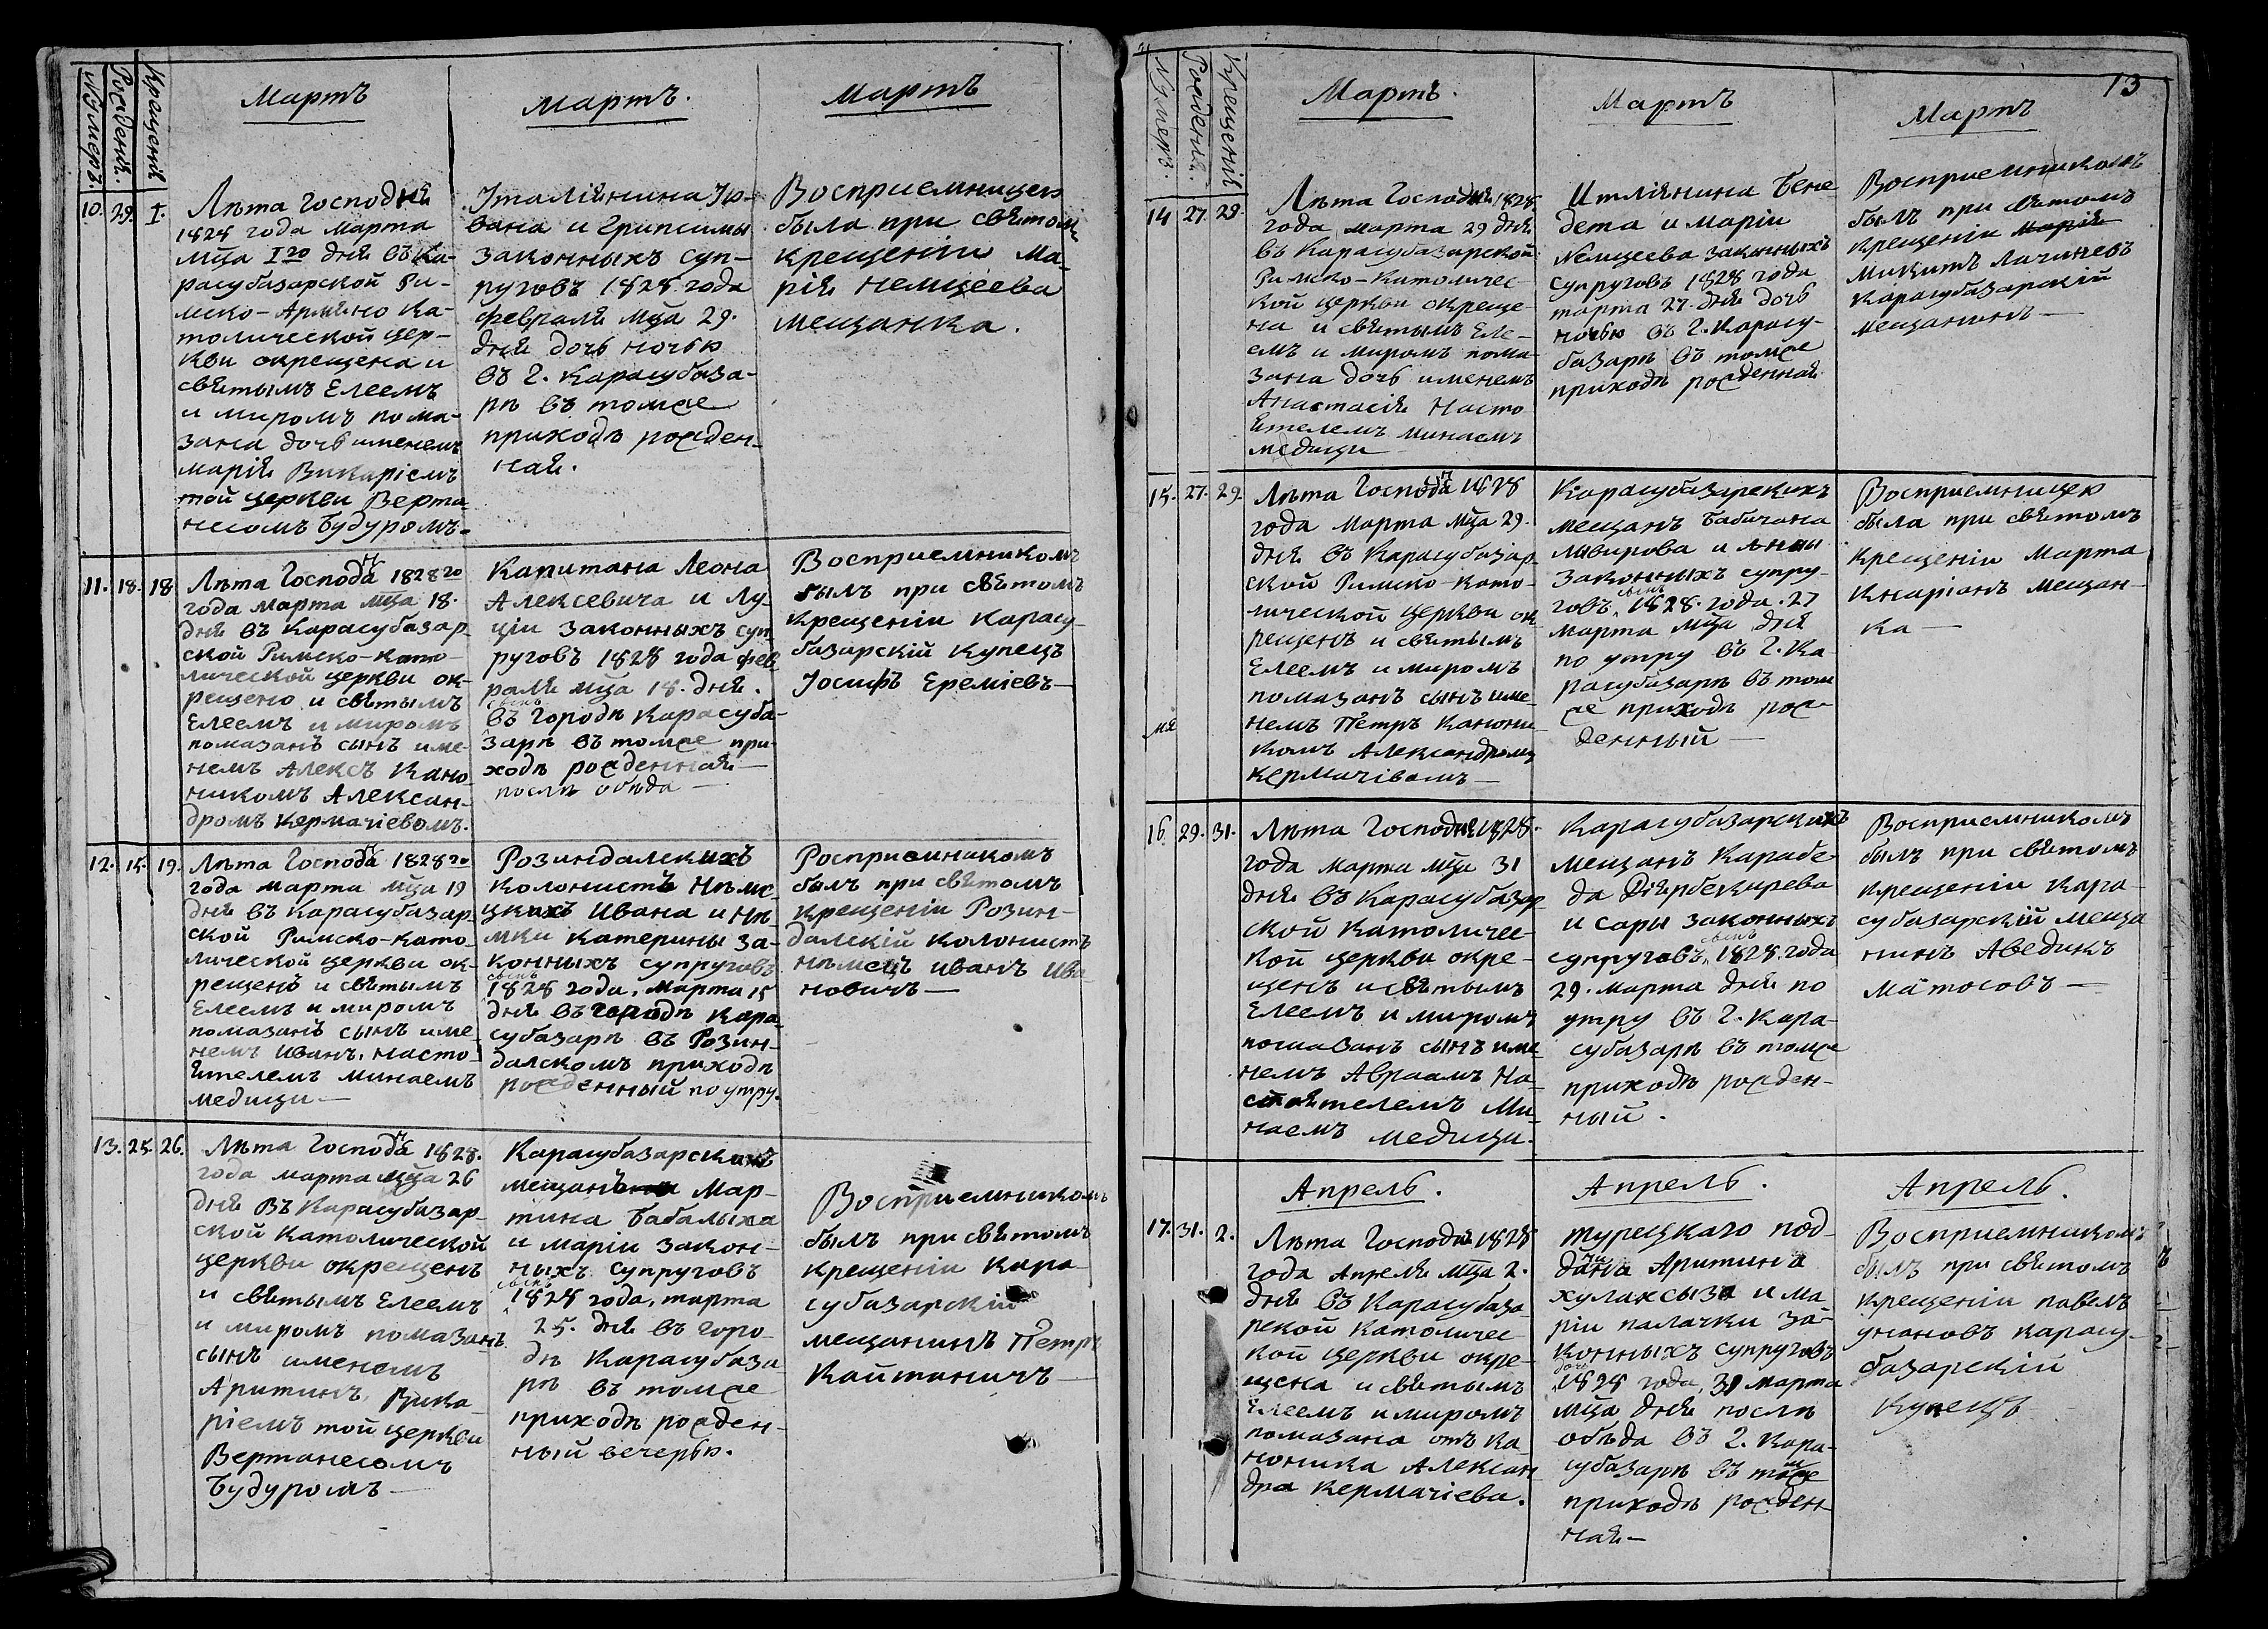 Нумеръ.
Рожденія.
Крещенія
Мартъ
Мартъ.
Мартъ
10. 29. I.
Лѣта Господня
1828 года марта
мца I го дня въ Ка-
расубазарской Ри-
мско-Армяно Ка-
толической цер-
кви окрещена и
святымъ Елеемъ
и миромъ пома-
зана дочь именемъ
марія Викаріемъ
той церкви Верта
несомъ Будуромъ.
Італіянина Іо-
вана и Грипсимы
законныхъ суп-
руговъ 1828 года
февраля мца 29.
дня дочь ночью
въ г. Карасубаза-
рѣ въ томже
приходѣ рожден-
ная.
Восприемницею
была при святомъ
крещеніи Ма-
рія Немцеева
мещанка.
11. 18. 18
Лѣта Господня 1828 го
года марта мца 18.
дня въ Карасубазар
ской Римско-Като-
лической церкви ок-
рещено и святымъ
Елеемъ и миромъ
помазанъ сынъ име-
немъ Алексъ Кано
никомъ Алексан-
дромъ Кермачіевомъ.
Капитана Леона
Алексевича и Лу-
ціи законныхъ суп-
руговъ 1828 года фев
раля мца 18. дня.
сынъ
въ городѣ Карасуба-
зарѣ въ томже при-
ходѣ рожденная
послѣ обѣда
Восприемникомъ
былъ при святомъ
крещеніи Карасу-
базарскій купецъ
Іосифъ Ереміевъ
12. 15. 19.
Лѣта Господня 1828 го
года марта мца 19
дня въ Карасубазар
ской Римско-като-
лической церкви ок-
рещенъ и святымъ
Елеемъ и миромъ
помазанъ сынъ име
немъ Иванъ, насто-
ятелемъ минаемъ
медици
Розиндалскихъ
колонистъ Нѣме
цкихъ Ивана и Нѣ
мки Катерины за-
конныхъ супруговъ
сынъ
1828 года, марта 15
дня въ городѣ Кара
субазарѣ въ Розин-
далскомъ приходѣ
рожденный по утру.
Росприемникомъ
былъ при святомъ
крещеніи Розин-
далскій колонистъ
нѣмецъ иванъ ива
новичъ
13. 25. 26.
Лѣта Господня 1828.
года марта мца 26
дня Въ Карасубазар-
ской Католической
церкви окрещенъ
и святымъ Елеемъ
и миромъ помазанъ
сынъ именемъ
Аритинъ, Вика-
ріемъ той церкви
Вертанесомъ
Будуромъ
Карасубазарскихъ
мещанъ Мар-
тина Бабалыха
и маріи закон-
ныхъ супруговъ
сынъ
1828 года, марта
25. дня въ горо-
дѣ Карасубаза
рѣ въ томже
приходѣ рожден-
ный вечерью.
Восприемникомъ
былъ при святомъ
крещеніи Кара
субазарскій
мещанинъ Петръ
Кайтаничъ
Нумеръ.
Рожденія.
Крещенія
Мартъ.
Мартъ
Мартъ
13
14 27. 29.
Лѣта Господня 1828
года марта 29 дня
въ Карасубазарской
Римско-Католичес
кой церкви окреще
на и святымъ Еле-
емъ и миромъ пома-
зана дочь именемъ
Анастасія Насто
ятелемъ минаемъ
медици
Итліянина Бене
дета и маріи
Немцеева законныхъ
супруговъ 1828 года
марта 27. дня дочь
ночью въ г. Карасу-
базарѣ въ томже
приходѣ рожденная
Восприемникомъ
былъ при святомъ
крещеніи марія
микитъ Лачиневъ
Карасубазарскій
мещанинъ
15. 27. 29.
Лѣта Господня 1828
года марта мца 29.
дня въ Карасубазар
ской Римско-като-
лической церкви ок
рещенъ и святымъ
Елеемъ и миромъ
помазанъ сынъ име
немъ Петръ Канони
комъ Александромъ
Кермачівомъ
Карасубазарскихъ
мещанъ Бабичана
и Анны
законныхъ супру-
сынъ
говъ, 1828. года. 27
марта мца дня
по утру въ г. Ка
расубазарѣ въ том
же приходѣ рож-
денный
Восприемницею
была при святомъ
крещеніи Марта
Кнаріанъ мещан-
ка
16. 29. 31.
Лѣта Господня 1828.
года марта мца 31
дня въ Карасубазар
ской католичес-
кой церкви окре-
щенъ и святымъ
Елеемъ и миромъ
помазанъ сынъ име
немъ Авраамъ На-
стоятелемъ Ми-
наемъ медици.
Карасубазарскихъ
мещанъ Карабе-
да Діярбекирева
и сары законныхъ
сынъ
супруговъ, 1828. года
29. марта дня по
утру въ г. Кара-
субазарѣ въ томже
приходѣ рожден-
ный.
Восприемникомъ
былъ при святомъ
крещеніи кара-
субазарскій меща
нинъ Аведикъ
матосовъ
Апрель.
Апрель.
Апрель.
17. 31. 2.
Лѣта Господня 1828
года Апреля мца 2.
дня въ Карасубаза
рской Католичес
кой церкви окре-
щена и святымъ
Елеемъ и миромъ
помазана отъ Ка-
ноника Александ
дра Кермачіева.
турецкаго под-
дана Аритина
хулаксыза и ма
ріи палачки за-
конныхъ супруговъ
дочь
1828 года, 31 марта
мца дня послѣ
обѣда въ г. Кара-
субазарѣ въ томже
приходѣ рожден
ная
Восприемникомъ
былъ при святомъ
крещеніи павелъ
унановъ карасу-
базарскій
Купецъ